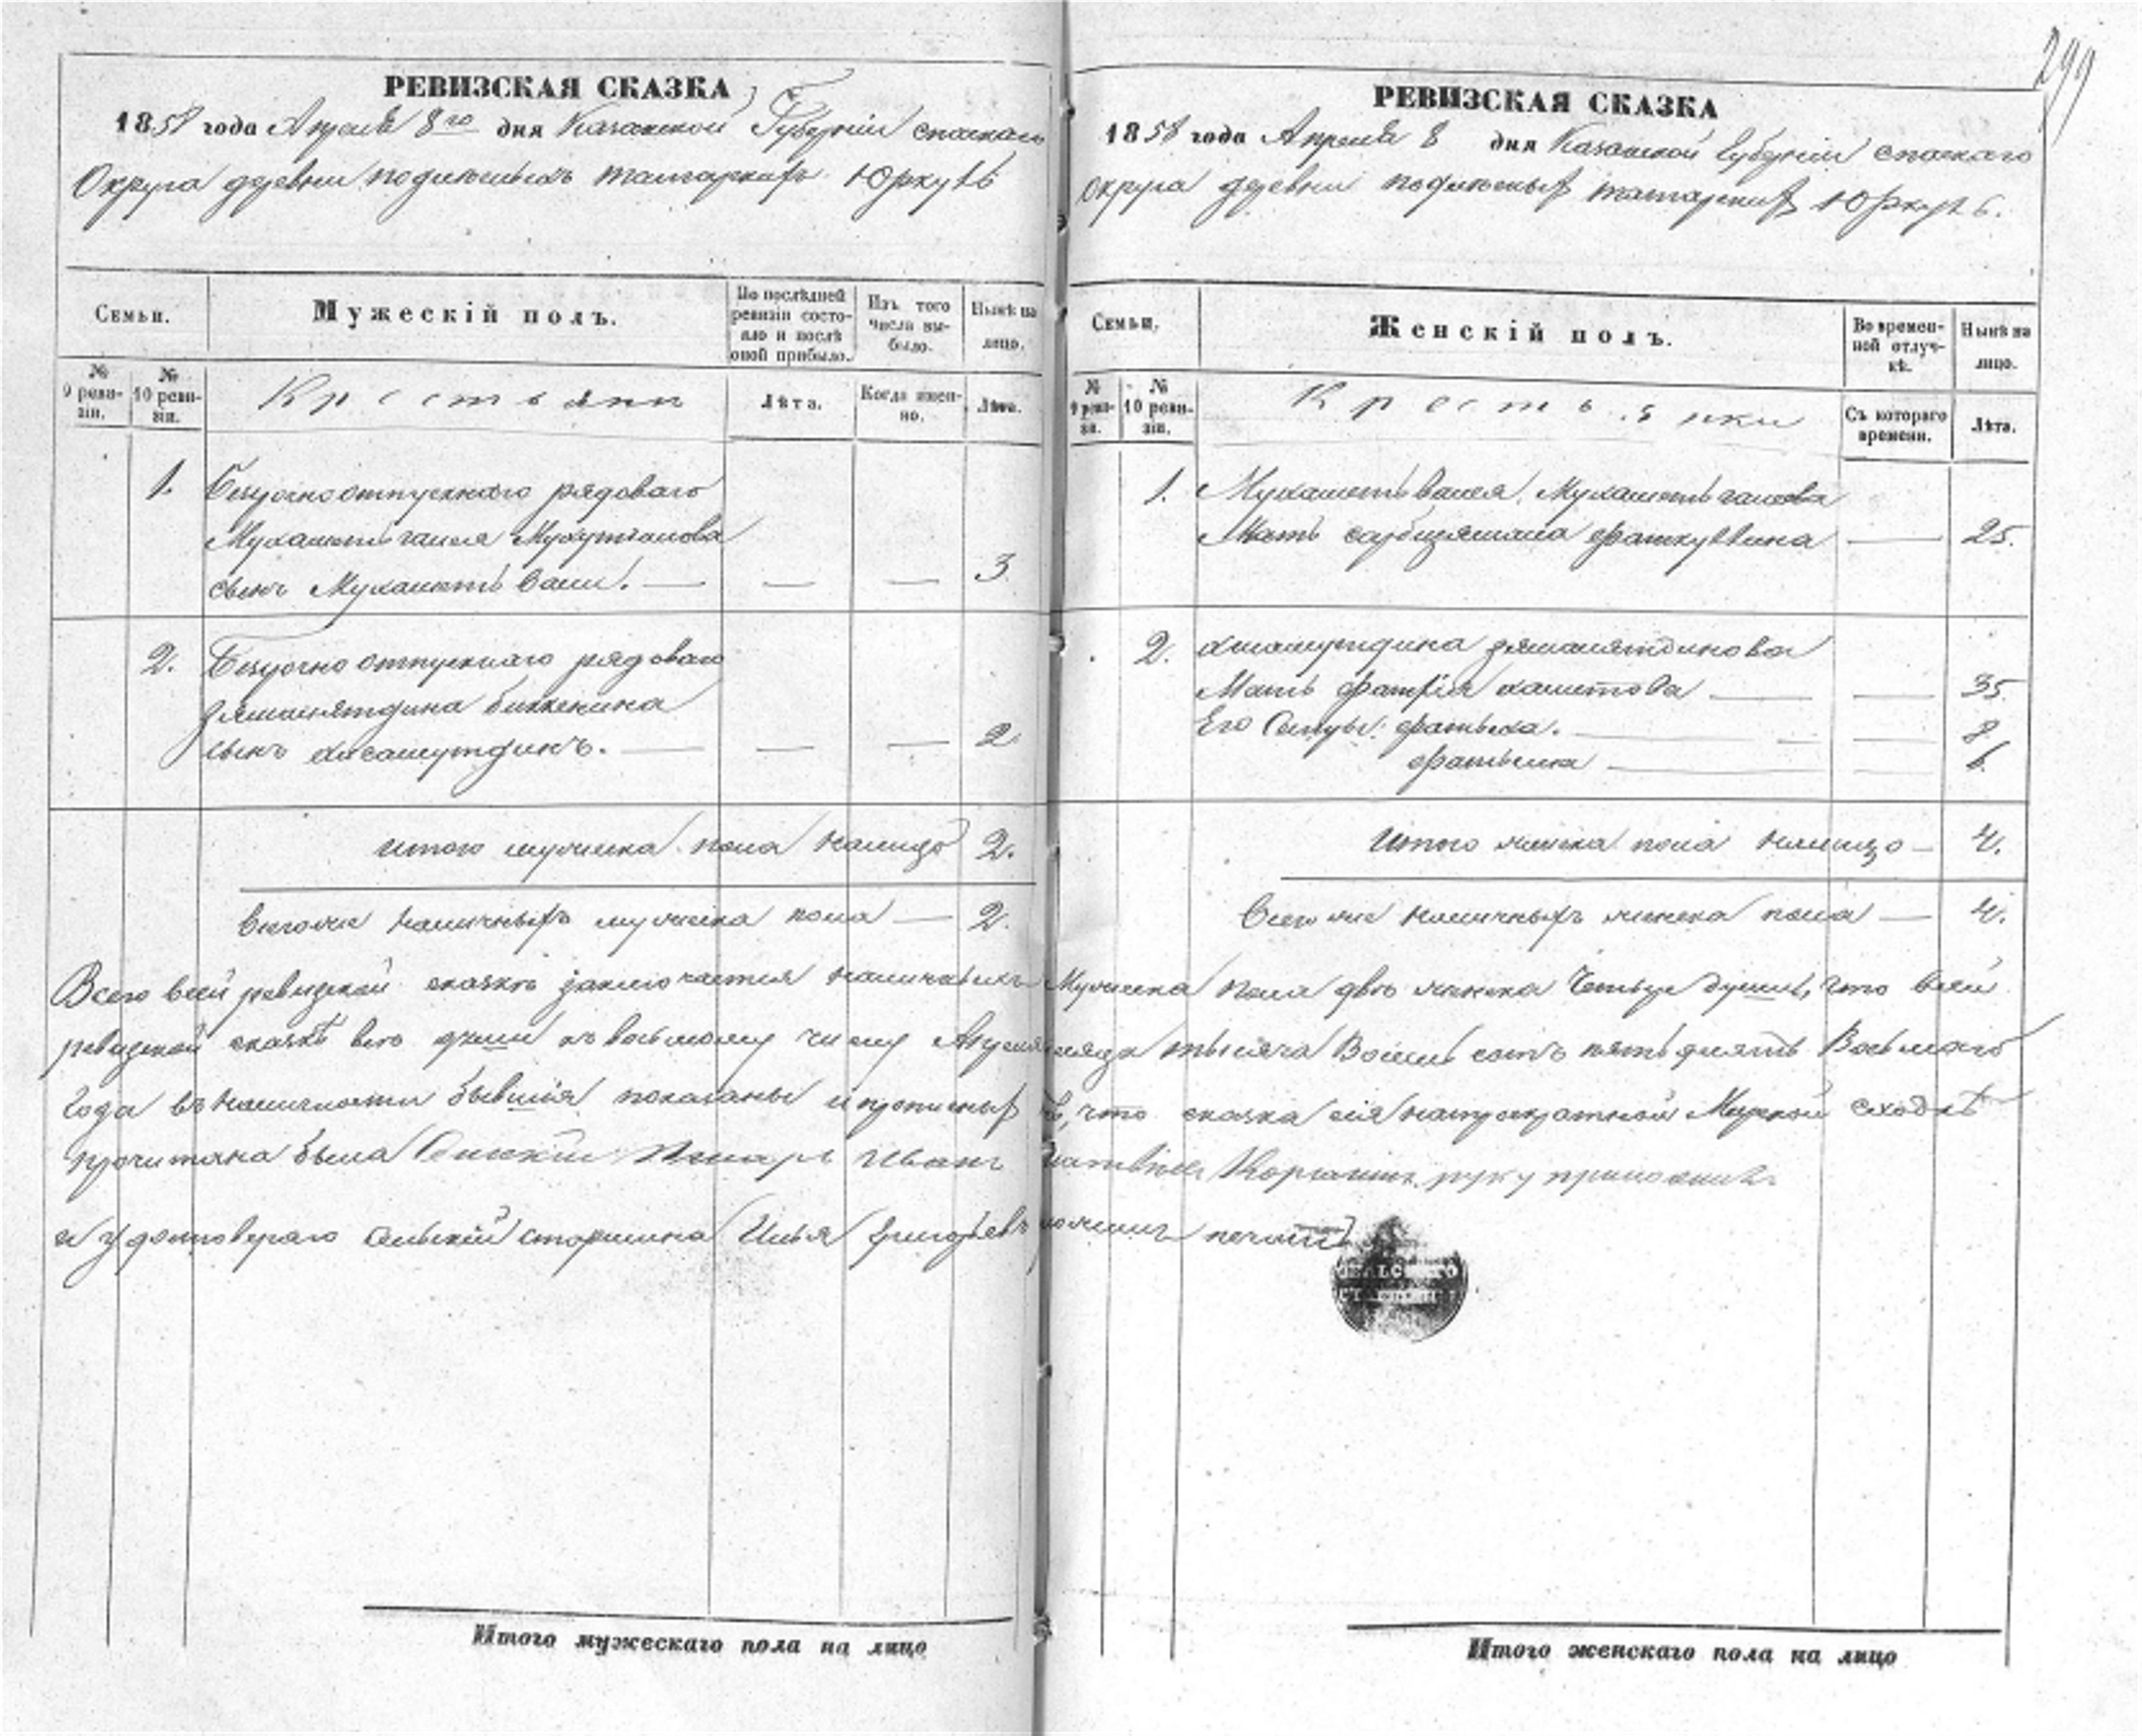 299
РЕВИЗСКАЯ СКАЗКА
1858 года Апреля 8го дня Казанской Губерніи спаскаго
Округа деревни татарскихъ Юркуль
Семьи.
Мужескій полъ.
По послѣдней ревизіи состояло и послѣ оной прибыло.
Изъ того числа выбыло.
Нынѣ на лицо.
№ 9 ревизіи.
№ 10 ревизіи.
Крестьяни
Лѣта.
Когда именно.
Лѣта.
1. Безсрочно отпускнаго рядоваго
Мухаметь галея
сынъ Мухаметь Вали. — — — 3
2. Безсрочно отпускнаго рядоваго
зямалятдина биккенина
сынъ хисамутдинъ. — — — 2
итого мужеска пола налицо 2.
Всего же наличныхъ мужеска пола — 2.
РЕВИЗСКАЯ СКАЗКА
1858 года Апреля 8 дня Казанской Губерніи спаскаго
Округа деревни татарскихъ Юркуль.
Семьи.
Женскій полъ.
Во временной отлучкѣ.
Нынѣ на лицо.
№ 9 ревизіи.
№ 10 ревизіи.
Крестьянки
Съ котораго времени.
Лѣта.
1. Мухаметь валея Мухаметь галеева
Мать — 25.
2. хисамутдина зямалятдинова
Мать хаметова — — 35.
Его Сестры: фатыха. — — 8.
— — 6.
Итого женска пола налицо — 4.
Всего же наличныхъ женска пола — 4.
Всего всей ревизской сказкѣ заключается наличныхъ Мужеска пола двѣ женска Четыре души, что всей
ревизской сказкѣ всѣ души къ восьмому числу Апреля месяца тысяча Восемь сотъ пятьдесятъ Восьмаго
Года въ наличности бывшія показаны и прописныхъ что сказка сія на Мирской сходкѣ
прочитана была Сельскій Писарь Иванъ руку приложилъ
и удостоверяю Сельскій старшина Илья Григорьевъ печать
СЕЛЬСКОГО
Итого мужескаго пола на лицо
Итого женскаго пола на лицо